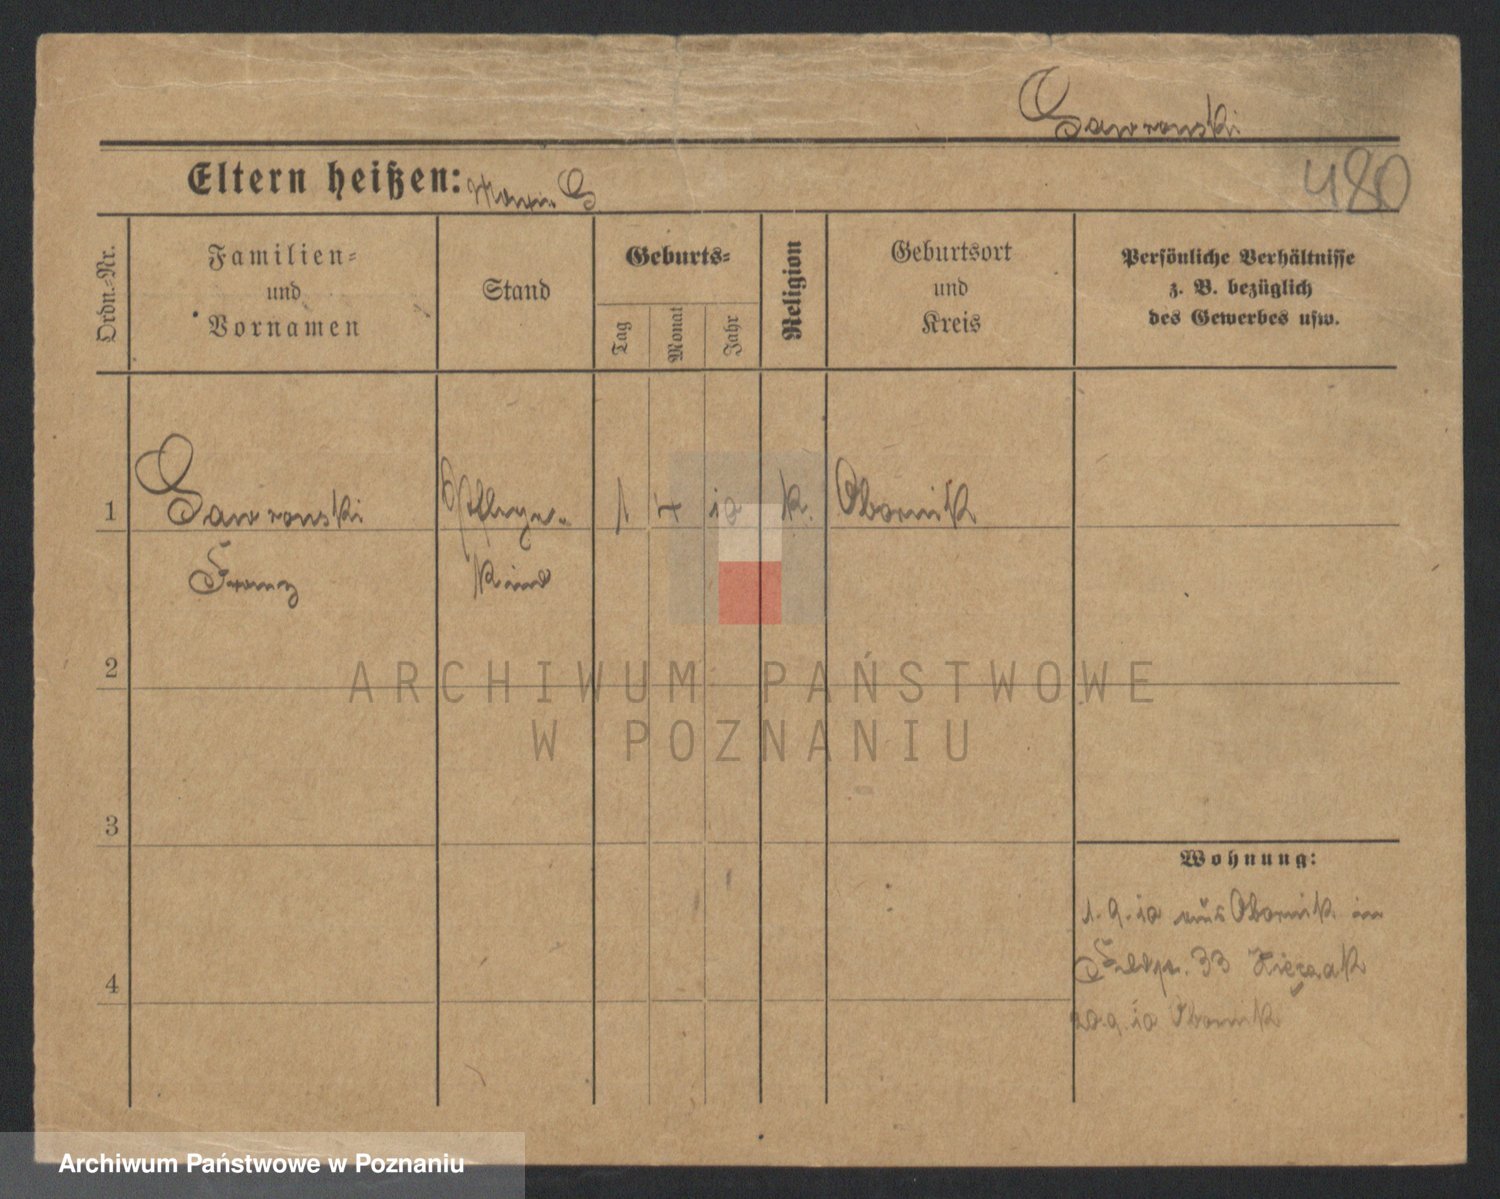 Gawronski
Eltern heißen: Maria G
480
Ordn.-Nr.
Familien-
und
Vornamen
Stand
Geburts-
Tag
Monat
Jahr
Religion
Geburtsort
und
Kreis
Persönliche Verhältnisse
z. B. bezüglich
des Gewerbes usw.
1 Gawronski Pflege- 1 4 10 k. Obornik
Franz Kind
2
ARCHIWUM PAŃSTWOWE
W POZNANIU
3
Wohnung:
1.9.10 aus Obornik in
33
4
20.9.10 Obornik
Archiwum Państwowe w Poznaniu